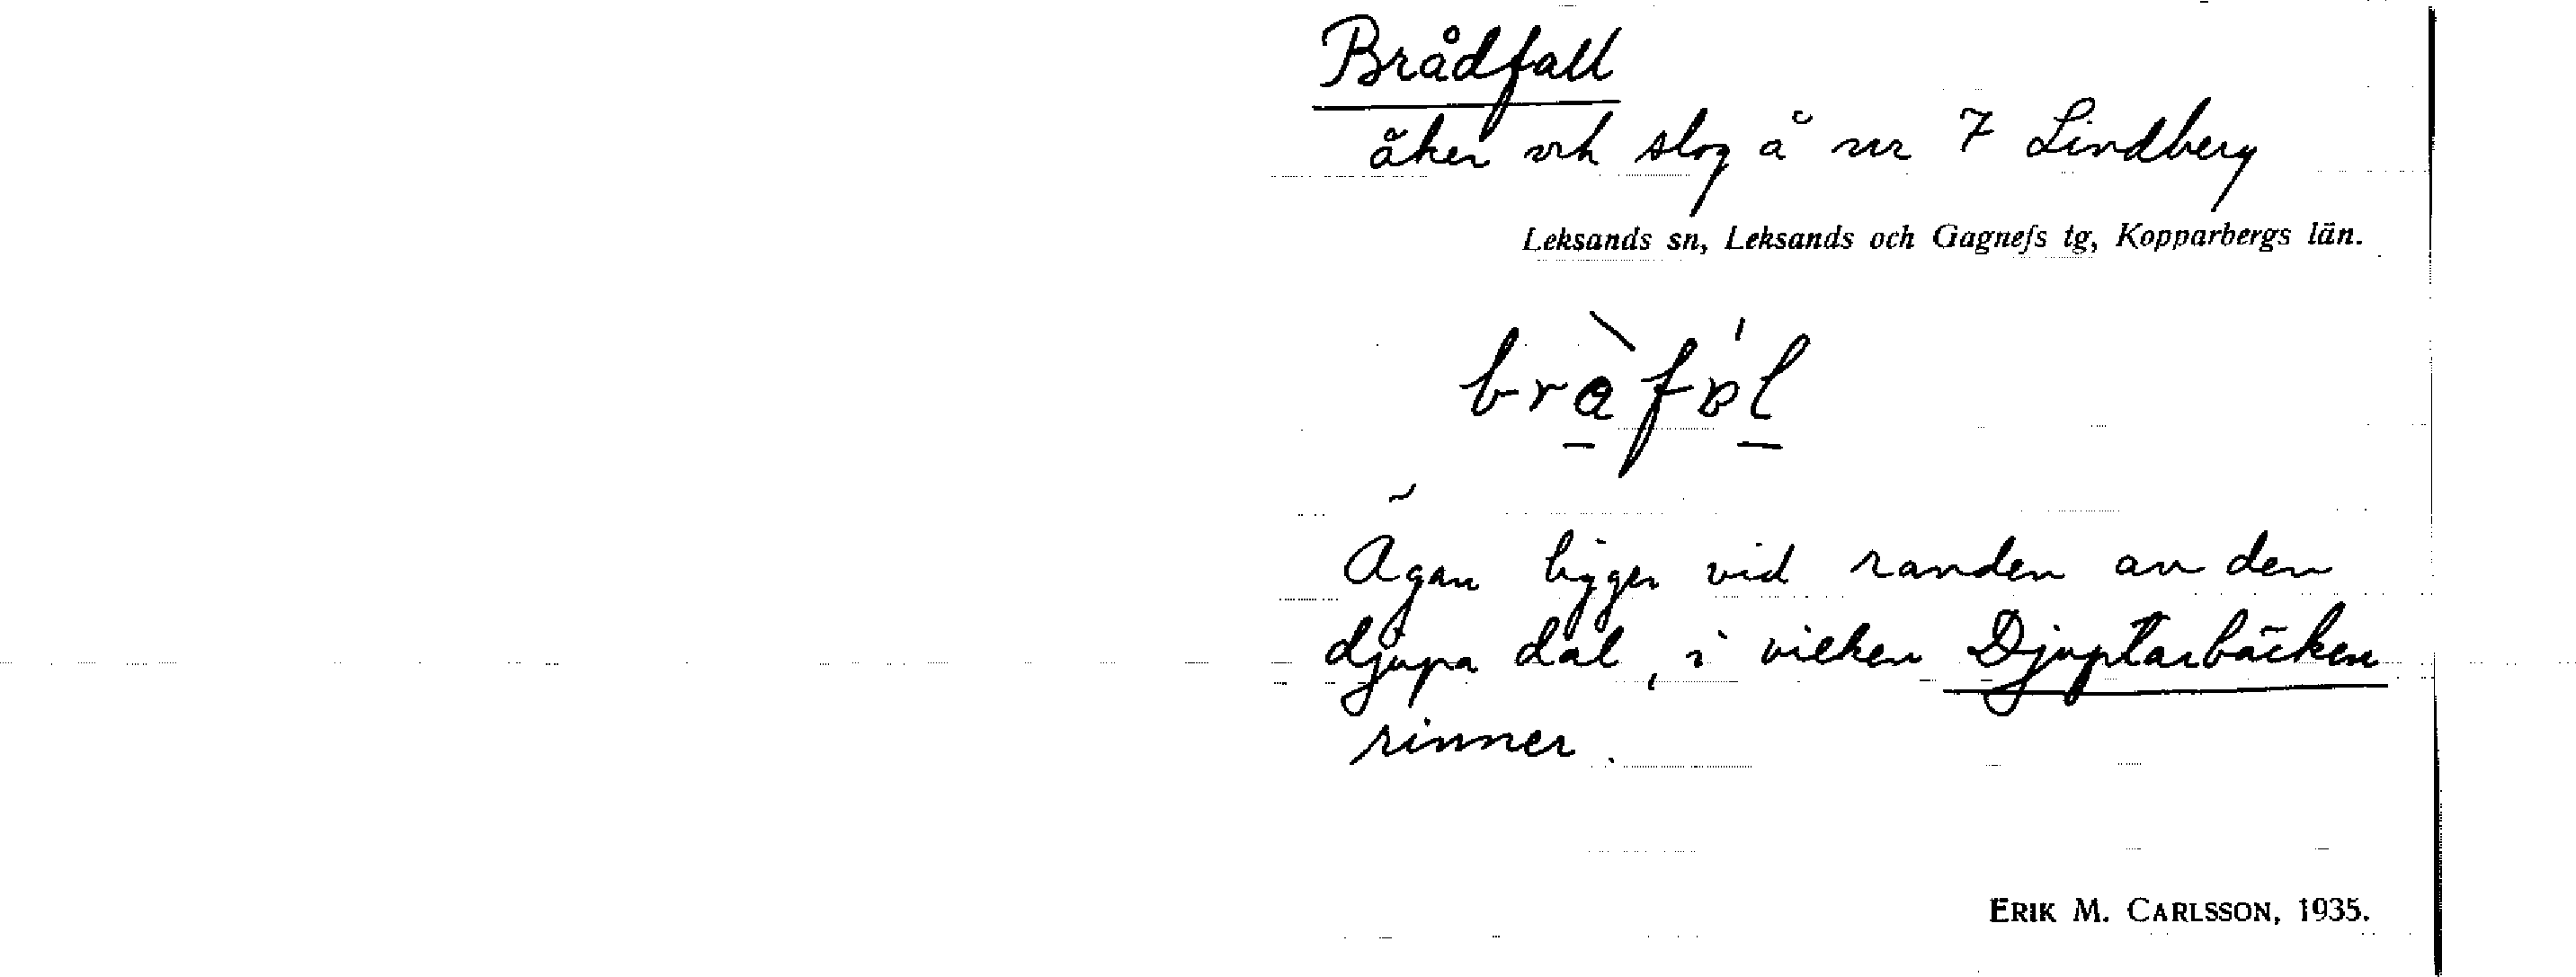 Brådfall
åker och slog å nr 7 Lindberg
Leksands sn, Leksands och Gagnefs tg, Kopparbergs län.
Ägan ligger vid randen av den
djupa dal, i vilken Djuptarbäcken
rinner.
ERIK M. CARLSSON, 1935.